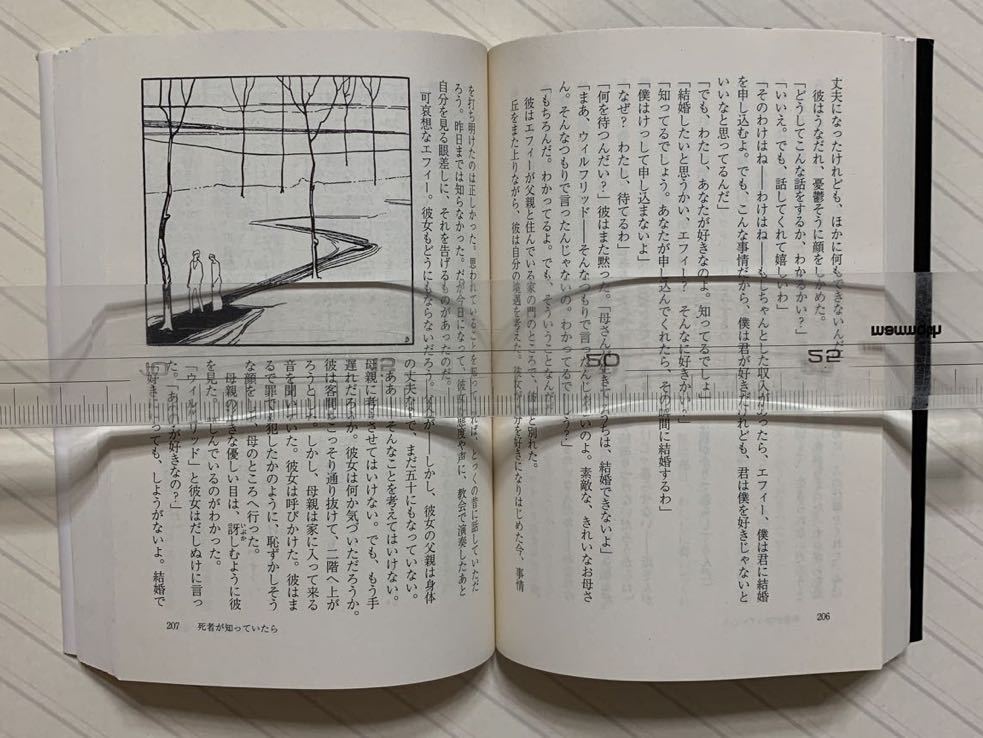 丈夫になったけれども、ほかに何もできないんだ
彼はうなだれ、憂鬱そうに顔をしかめた。
「どうしてこんな話をするか、わかるかい?」
「いいえ。でも、話してくれて嬉しいわ」
「そのわけはね――わけはね――もしちゃんとした収入があったら、エフィー、僕は君に結婚
を申し込むよ。でも、こんな事情だから、僕は君が好きだけれども、君は僕を好きじゃないと
いいなと思ってるんだ」
「でも、わたし、あなたが好きなのよ。知ってるでしょ」
「結婚したいと思うかい、エフィー? そんなに好きかい?」
「知ってるでしょう。あなたが申し込んでくれたら、その瞬間に結婚するわ」
「僕はけっして申し込まないよ」
「なぜ? わたし、待てるわ」
「何を待つんだい?」彼はまた黙った。「母さんが生きてるうちは、結婚できないよ」
「まあ、ウィルフリッド――そんなつもりで言ったんじゃないのよ。素敵な、きれいなお母さ
ん。そんなつもりで言ったんじゃないの。わかってるでしょう?」
「もちろんだ。わかってるよ。でも、そういうことなんだ」
彼はエフィーが父親と住んでいる家の門のところで、彼女と別れた。
丘をまた上りながら、彼は自分の境遇を考えた。彼女が自分を好きになりはじめた今、事情
206
を打ち明けたのは正しかった。思われていることを知っていれば、とっくの昔に話していただ
ろう。昨日までは知らなかった。だが今日になって、彼女の態度や声に、教会で演奏したあと
自分を見る眼差しに、それを告げるものがあったのだ。
可哀想なエフィー。彼女もどうにもならないだろう。父親が――しかし、彼女の父親は身体
の丈夫な人で、まだ五十にもなっていない。
ああ、そんなことを考えてはいけない。
母親に考えさせてはいけない。でも、もう手
遅れだろうか。彼女は何か気づいただろうか。
彼は客間をこっそり通り抜けて、二階へ上が
ろうとした。しかし、母親は家に入って来る
音を聞いていた。彼女は呼びかけた。彼はま
るで罪でも犯したかのように、恥ずかしそう
な顔をし、母のところへ行った。
母親の大きな優しい目は、訝しむように彼
いぶか
を見た。悲しんでいるのがわかった。
「ウィルフリッド」と彼女はだしぬけに言っ
た。「あの子が好きなの?」
「好きになっても、しようがないよ。結婚で
207 死者が知っていたら
mammoth
50
52